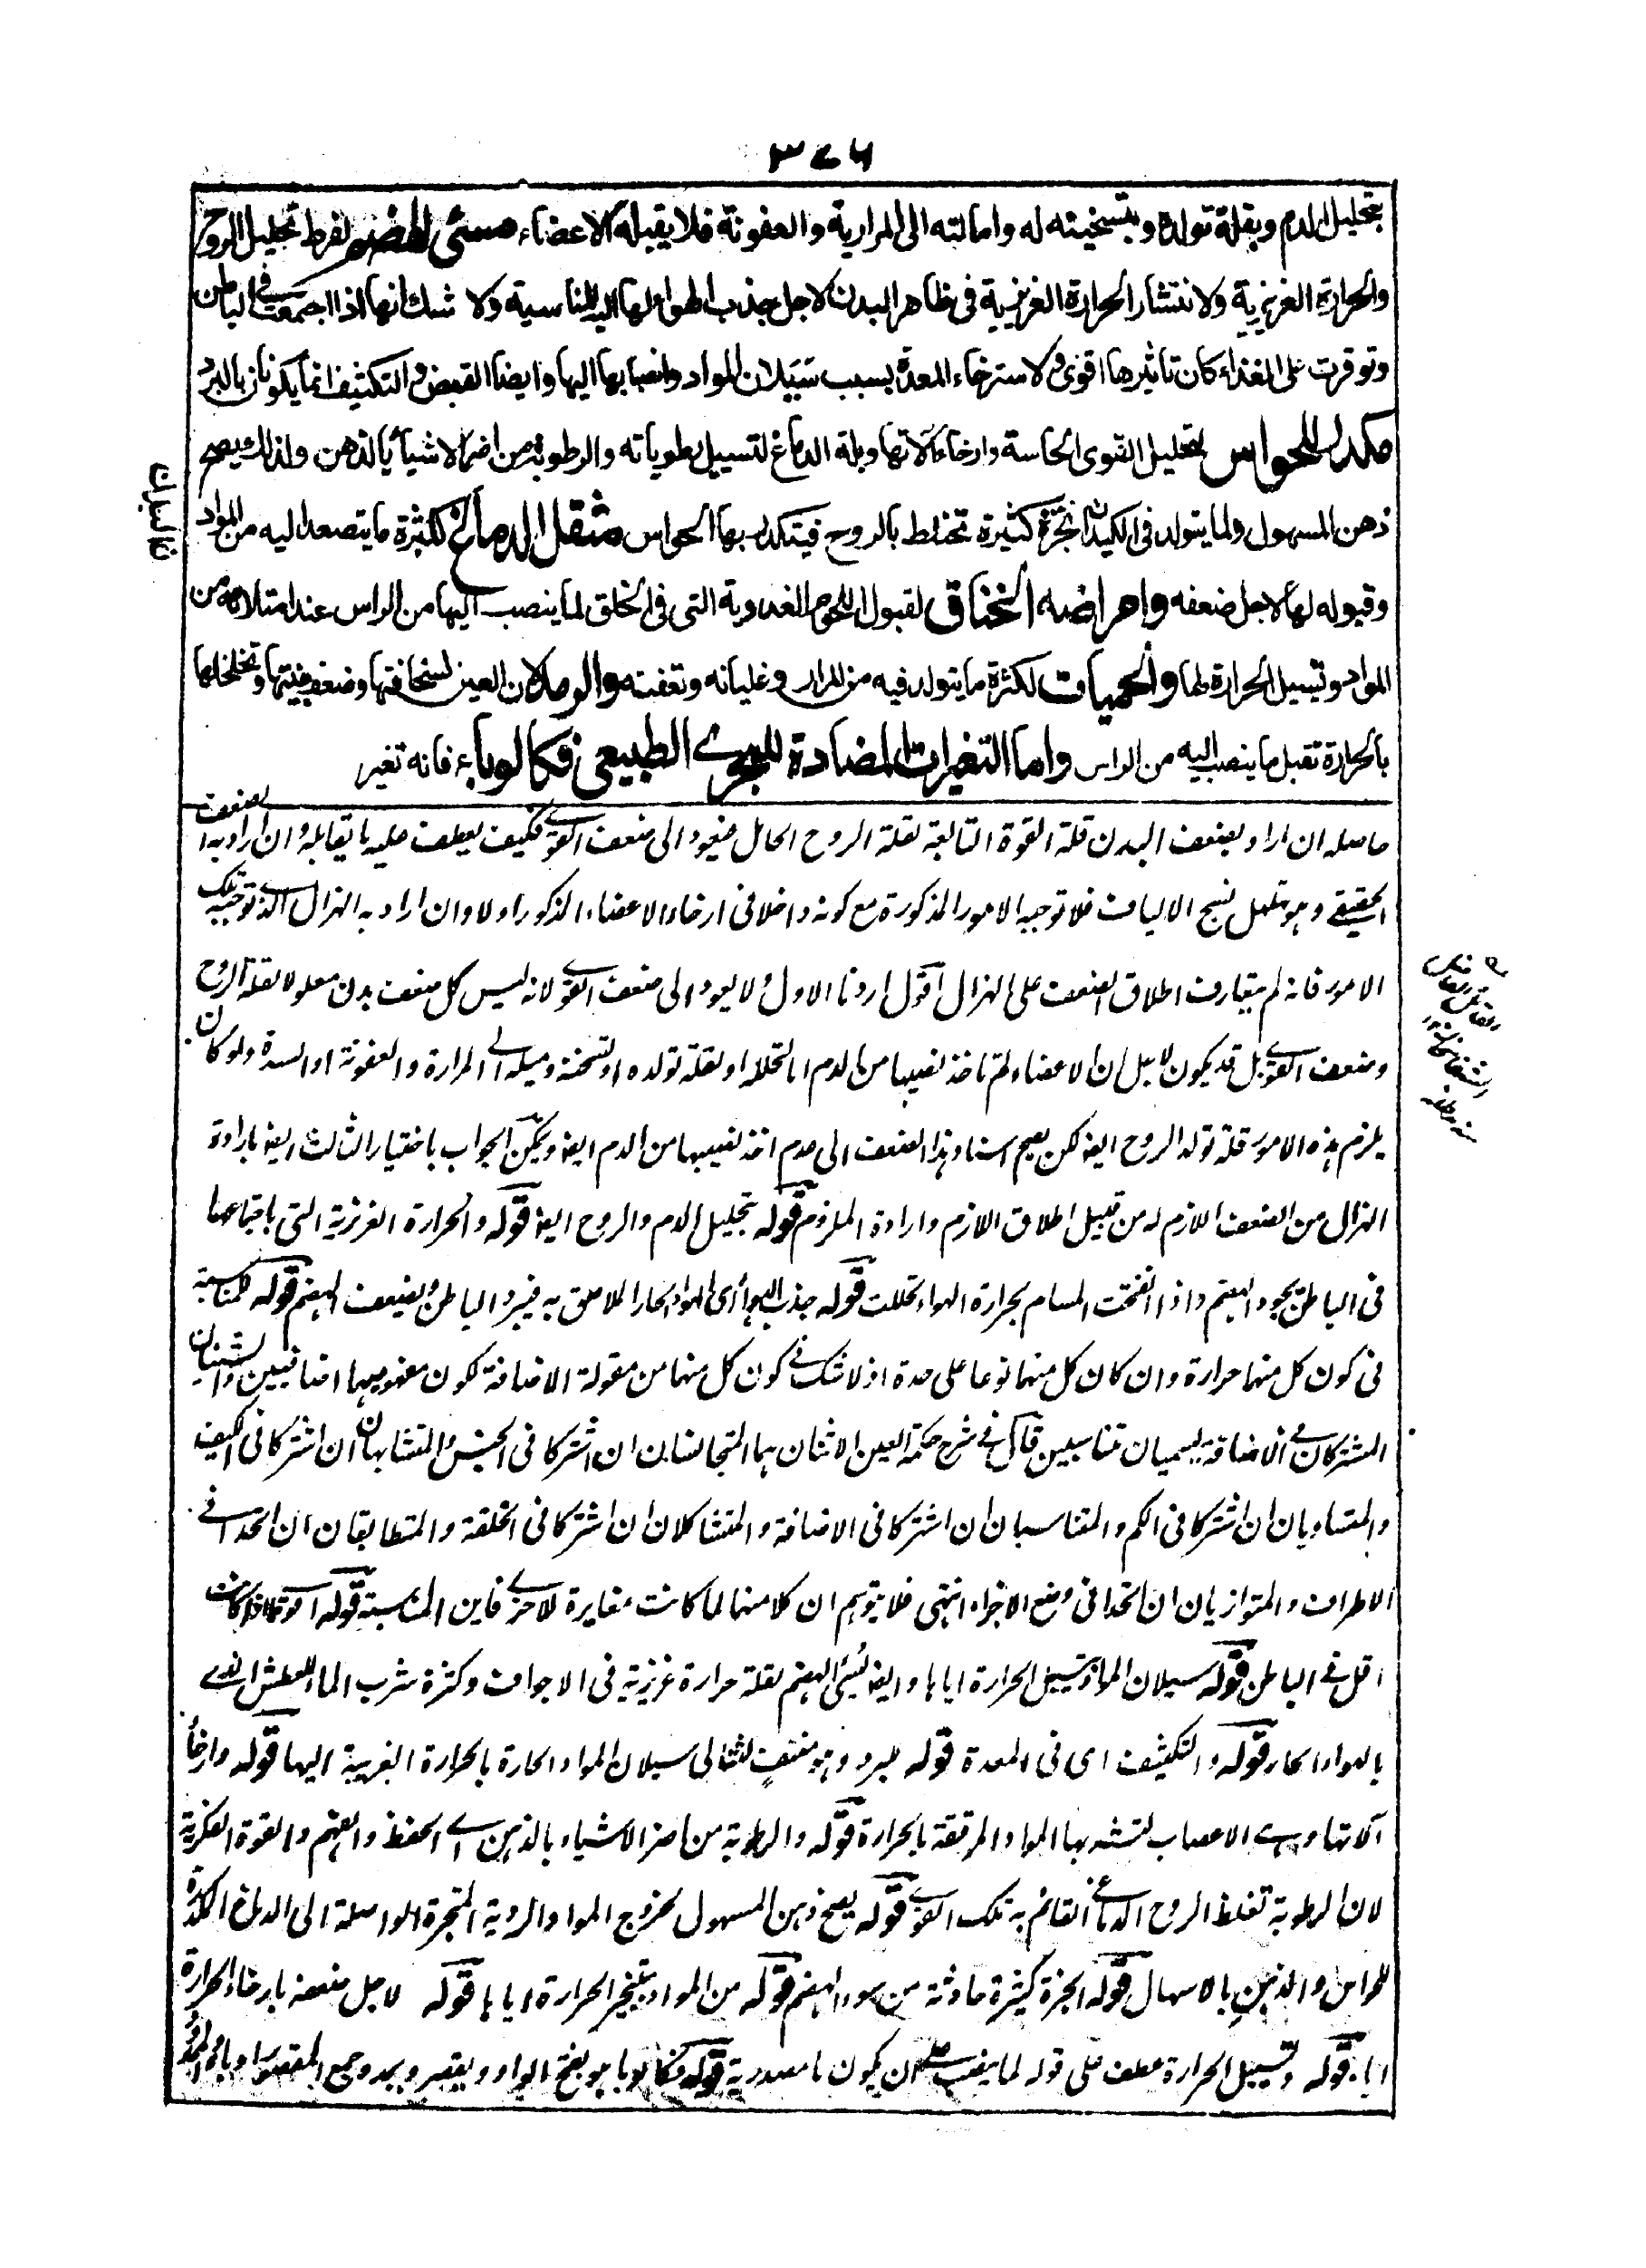 ٣٧٦
بتحليل الدم وبقلة تولده وبتسخينه له وامالته الى المرارية والعفونة فلا يقبله الاعضاء مسئ الهضم لفرط تحليل الروح
والحرارة الغريزية ولانتشار الحرارة الغريزية فى ظاهر البدن لاجل جذب الهواء لها اليه للمناسبة ولا شك انها اذا اجتمعت فى الباطن
وتوفرت على الغذاء كان تاثيرها اقوى ولاسترخاء المعدة بسبب سيلان المواد وانصبابها اليها وايضا القبض والتكثيف انما يكونان بالبرد
مكدر للحواس لتحليل القوى الحاسة وارخاء آلاتها وبلة الدماغ لتسييل رطوباته والرطوبة من اضر الاشياء بالذهن ولذلك يصح
ذهن المسهول ولما يتولد فى الكبد ابخرة كثيرة تختلط بالروح فيتكدر بها الحواس مثقل الدماغ لكثرة ما يتصعد اليه من المواد
وقبوله لها لاجل ضعفه وامراضه الخناق لقبول اللحوم الغددية التى فى الحلق لما ينصب اليها من الراس عند امتلائه من
المواد وتسييل الحرارة لها والحميات لكثرة ما يتولد فيه من المرار وغليانه وتعفنه والرمد لان العين لسخافتها وضعف بنيتها وتخلخلها
بالحرارة تقبل ما ينصب اليه من الراس واما التغيرات المضادة للمجرى الطبيعى فكالوباء فانه تغير
حاصله ان اراد بضعف البدن قلة القوة التابعة لقلة الروح الحامل فيعود الى ضعف القوى فكيف يعطف عليه ما يقابله وان اراد به الضعف
الحقيقى وهو تهلهل نسج الالياف فلا توجبه الامور المذكورة مع كونه داخلا فى ارخاء الاعضاء المذكور اولا وان اراد به الهزال الذى توجبه تلك
الامور فانه لم يتعارف اطلاق الضعف على الهزال اقول اردنا الاول ولا يعود الى ضعف القوى لانه ليس كل ضعف بدن معلولا لقلة الروح
وضعف القوى بل قد يكون لاجل ان الاعضاء لم تاخذ نصيبها من الدم اما لتحلله او لقلة تولده او لتسخنه وميله الى المرارة والعفونة او السدة ولو كان
يلزم هذه الامور قلة تولد الروح ايضا لكن يصح اسناد هذا الضعف الى عدم اخذ نصيبها من الدم ايضا ويمكن الجواب باختيار الثالث ايضا بارادة
الهزال من الضعف اللازم له من قبيل اطلاق اللازم وارادة الملزوم قوله تحليل الدم والروح ايضا قوله والحرارة الغريزية التى باجتماعها
فى الباطن يجود الهضم واذا انفتحت المسام بحرارة الهواء تحللت قوله جذب الهواء اى الهواء الحار الملاصق به فيبرد الباطن ويضعف الهضم قوله للمناسبة
فى كون كل منهما حرارة وان كان كل منهما نوعا على حدة اذ لا شك فى كون كل منهما من مقولة الاضافة لكون مفهوميهما اضافيين والشيئان
المشتركان فى الاضافة يسميان متناسبين قال فى شرح حكمة العين الاثنان هما المتجانسان ان اشتركا فى الجنس والمتشابهان ان اشتركا فى الكيف
والمتساويان ان اشتركا فى الكم والمتناسبان ان اشتركا فى الاضافة والمتشاكلان ان اشتركا فى الخلقة والمتطابقان ان اتحدا فى
الاطراف والمتوازيان ان اتحدا فى وضع الاجزاء انتهى فلا يتوهم ان كلا منهما لما كانت مغايرة للاخرى فاين المناسبة قوله اقوى مما اذا كانت
اقل فى الباطن قوله سيلان المواد وتسييل الحرارة اياها وايضا يسئ الهضم لقلة حرارة غريزية فى الاجواف وكثرة شرب الماء للعطش الذى
بالهواء الحار قوله والتكثيف اى فى المعدة قوله بالبرد وهو منتف لتتالى سيلان المواد الحارة بالحرارة الغريبة اليها قوله وارخاء
آلاتها وهى الاعصاب لتشربها المواد المرققة بالحرارة قوله والرطوبة من اضر الاشياء بالذهن اى الحفظ والفهم والقوة الفكرية
لان الرطوبة تغلظ الروح الدماغى القائم به تلك القوى قوله يصح ذهن المسهول لخروج المواد الردية المتبخرة الواصلة الى الدماغ المكدرة
للحواس والذهن بالاسهال قوله ابخرة كثيرة حادثة من سوء الهضم قوله من المواد بتبخير الحرارة اياها قوله لاجل ضعفه بارخاء الحرارة
اياه قوله وتسييل الحرارة عطف على قوله لما ينصب على ان يكون ما مصدرية قوله فكالوباء هو بفتح الواو ويقصر ويمد وجمع المقصور اوباء